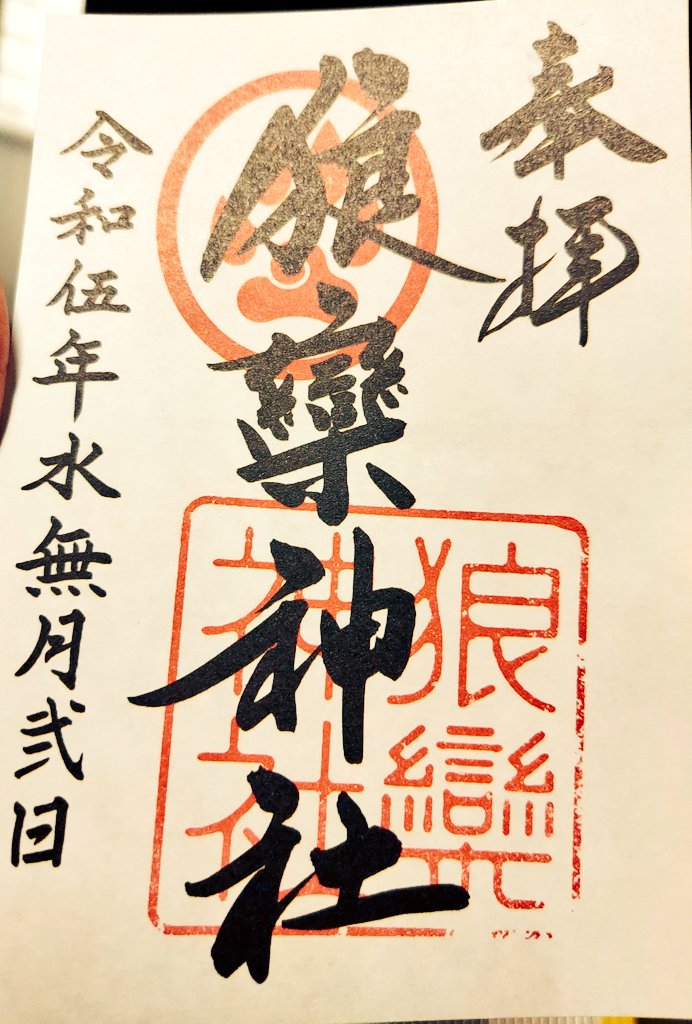 奉拝
狼欒神社
狼欒
神社
令和伍年水無月弐日